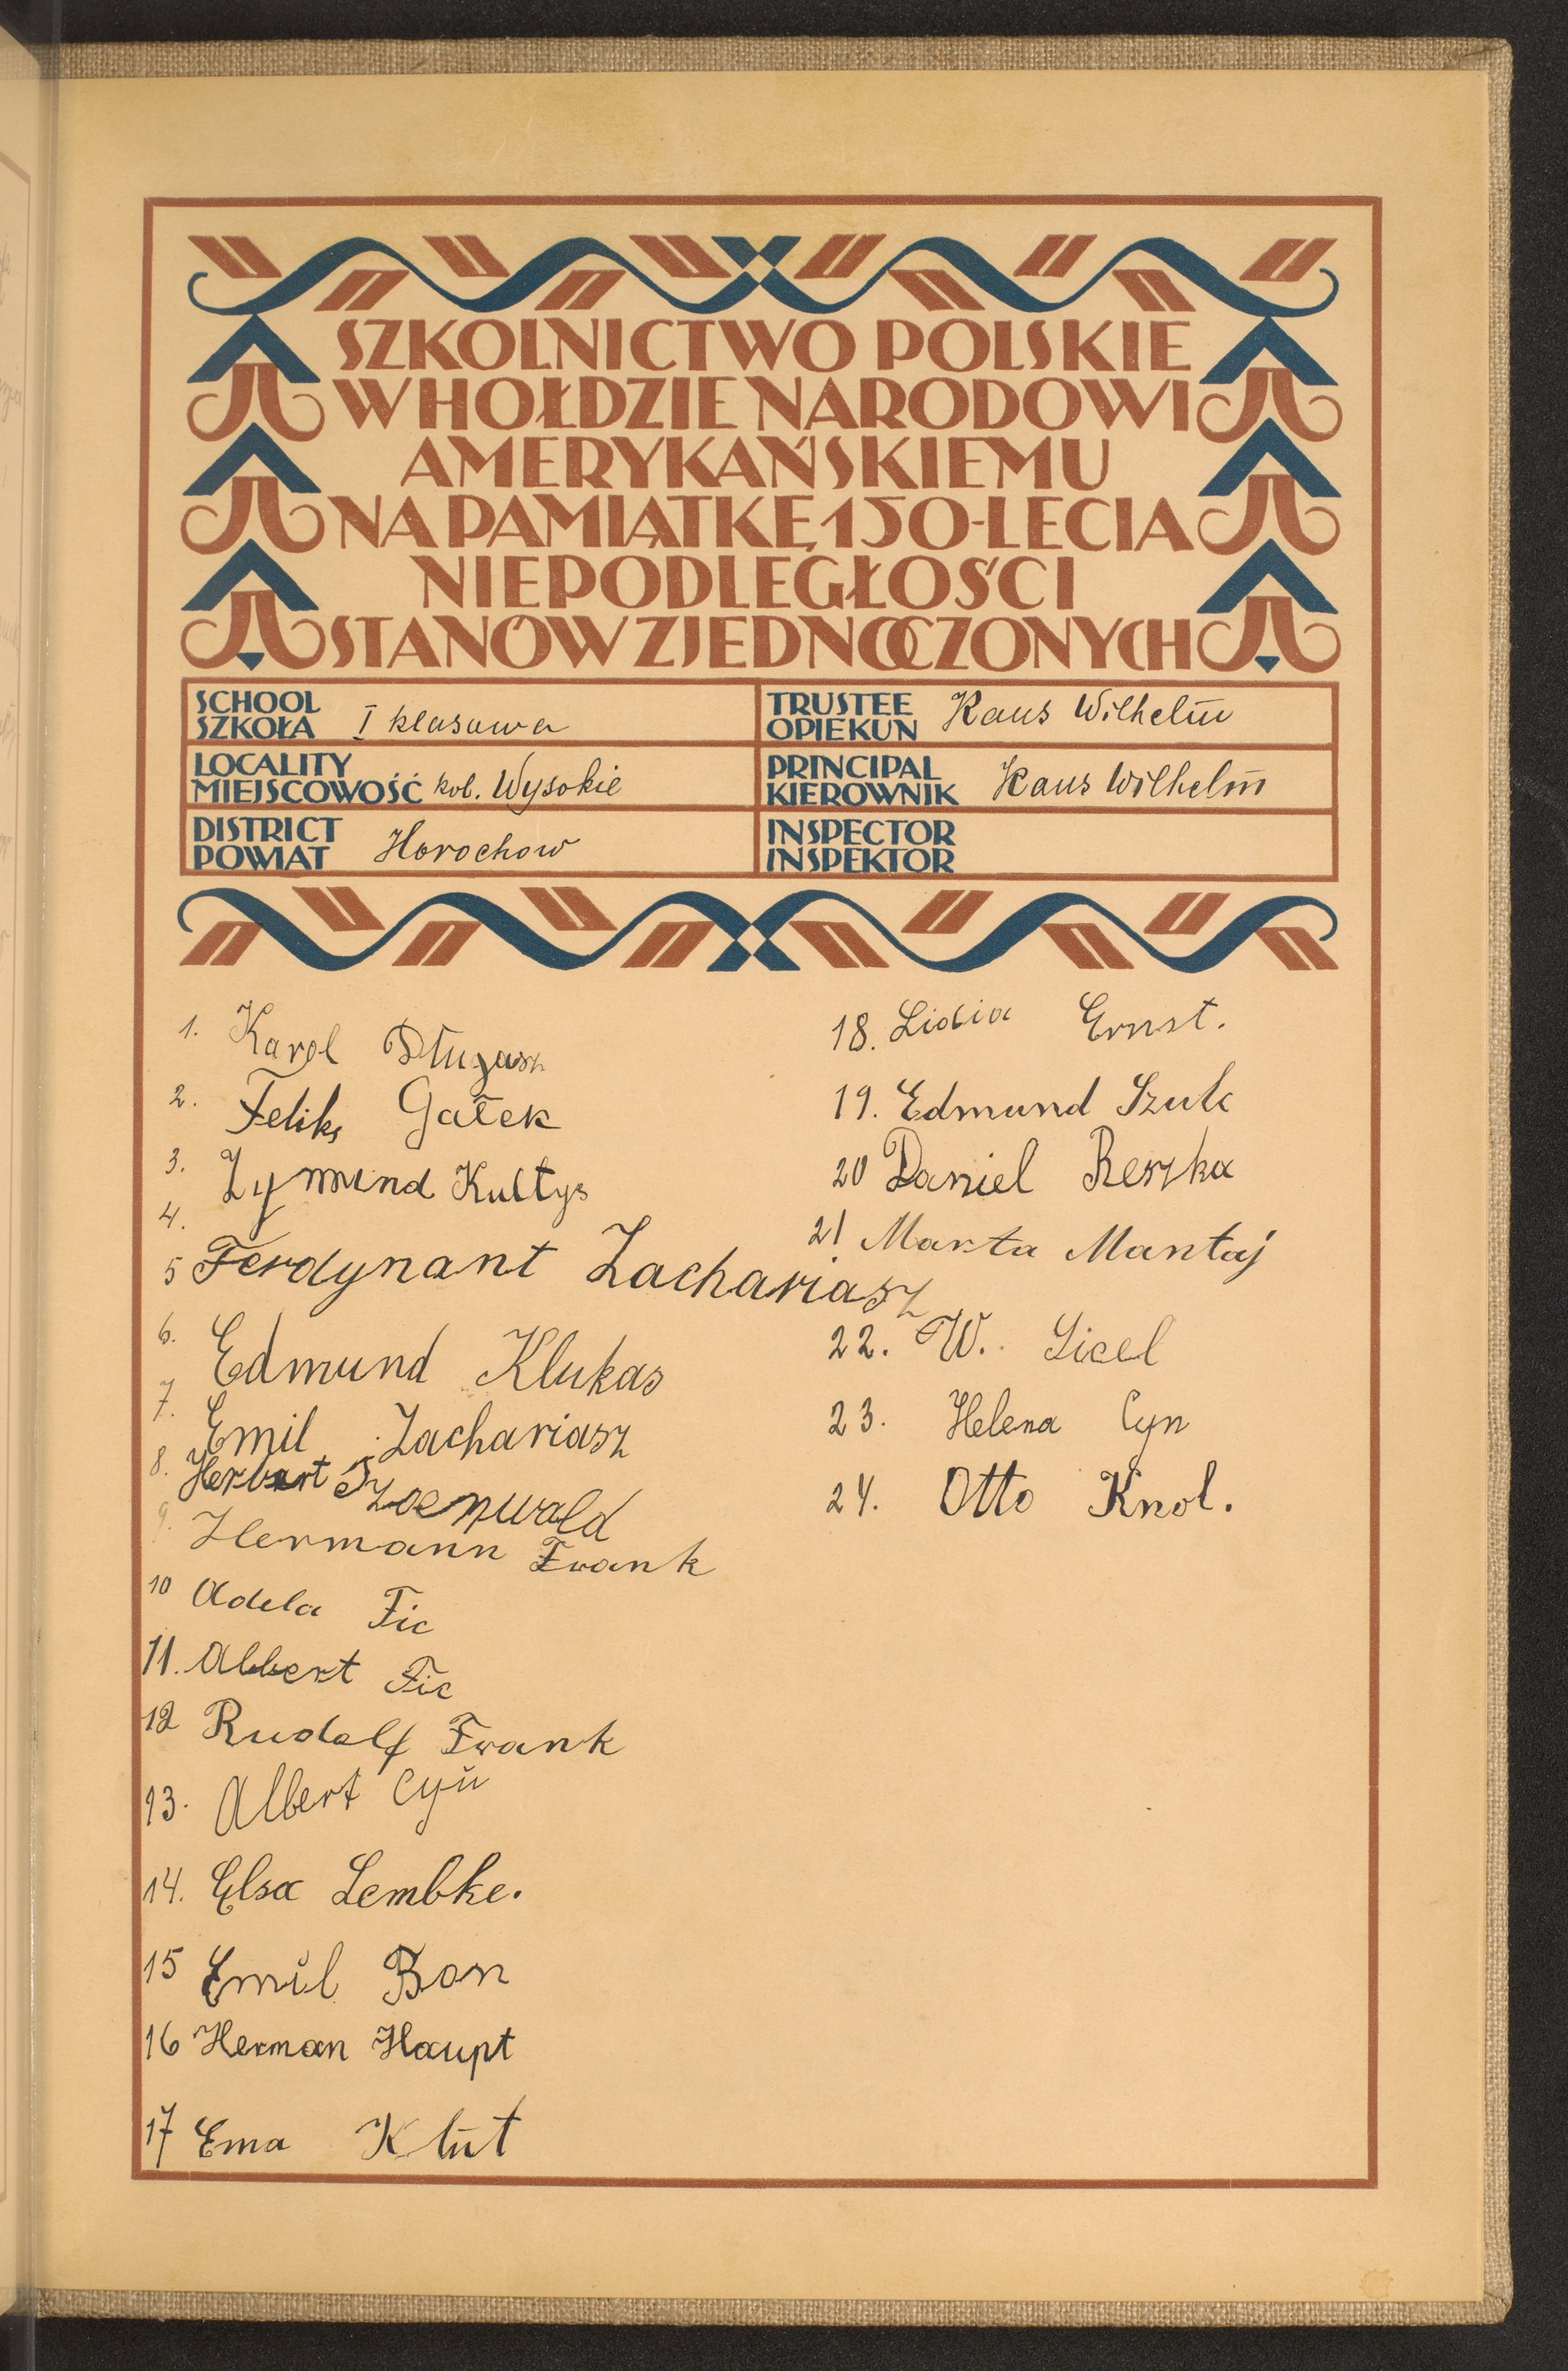 SZKOLNICTWO POLSKIE
W HOŁDZIE NARODOWI
AMERYKAŃSKIEMU
NA PAMIĄTKĘ 150-LECIA
NIEPODLEGŁOŚCI
STANÓW ZJEDNOCZONYCH
SCHOOL
SZKOŁA I klasowa
TRUSTEE
OPIEKUN Kaus Wilhelm
LOCALITY
MIEJSCOWOŚĆ kol. Wysokie
PRINCIPAL
KIEROWNIK Kaus Wilhelm
DISTRICT
POWIAT Horochow
INSPECTOR
INSPEKTOR
1. Karol Długasz
2. Feliks Gałek
3. Zymund Kultys
4.
5 Ferdynant Zachariasz
6. Edmund Klukas
7. Emil Zachariasz
8. Herbert Szoenwald
9. Hermann Frank
10 Adela Fic
11. Albert Fic
12 Rudolf Frank
13. Albert Cyn
14. Elsa Lembke.
15 Emil Bon
16 Herman Haupt
17 Ema Klut
18. Lidia Ernst.
19. Edmund Szulc
20 Daniel Reszka
21 Marta Mantaj
22. W.
23. Helena Cyn
24. Otto Knol.